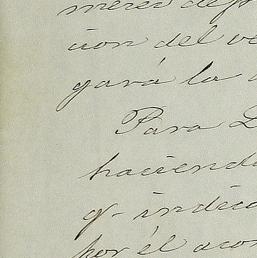 merci dep
cion del ve
gará la a
Para L
haciend
q. indic
por él acor